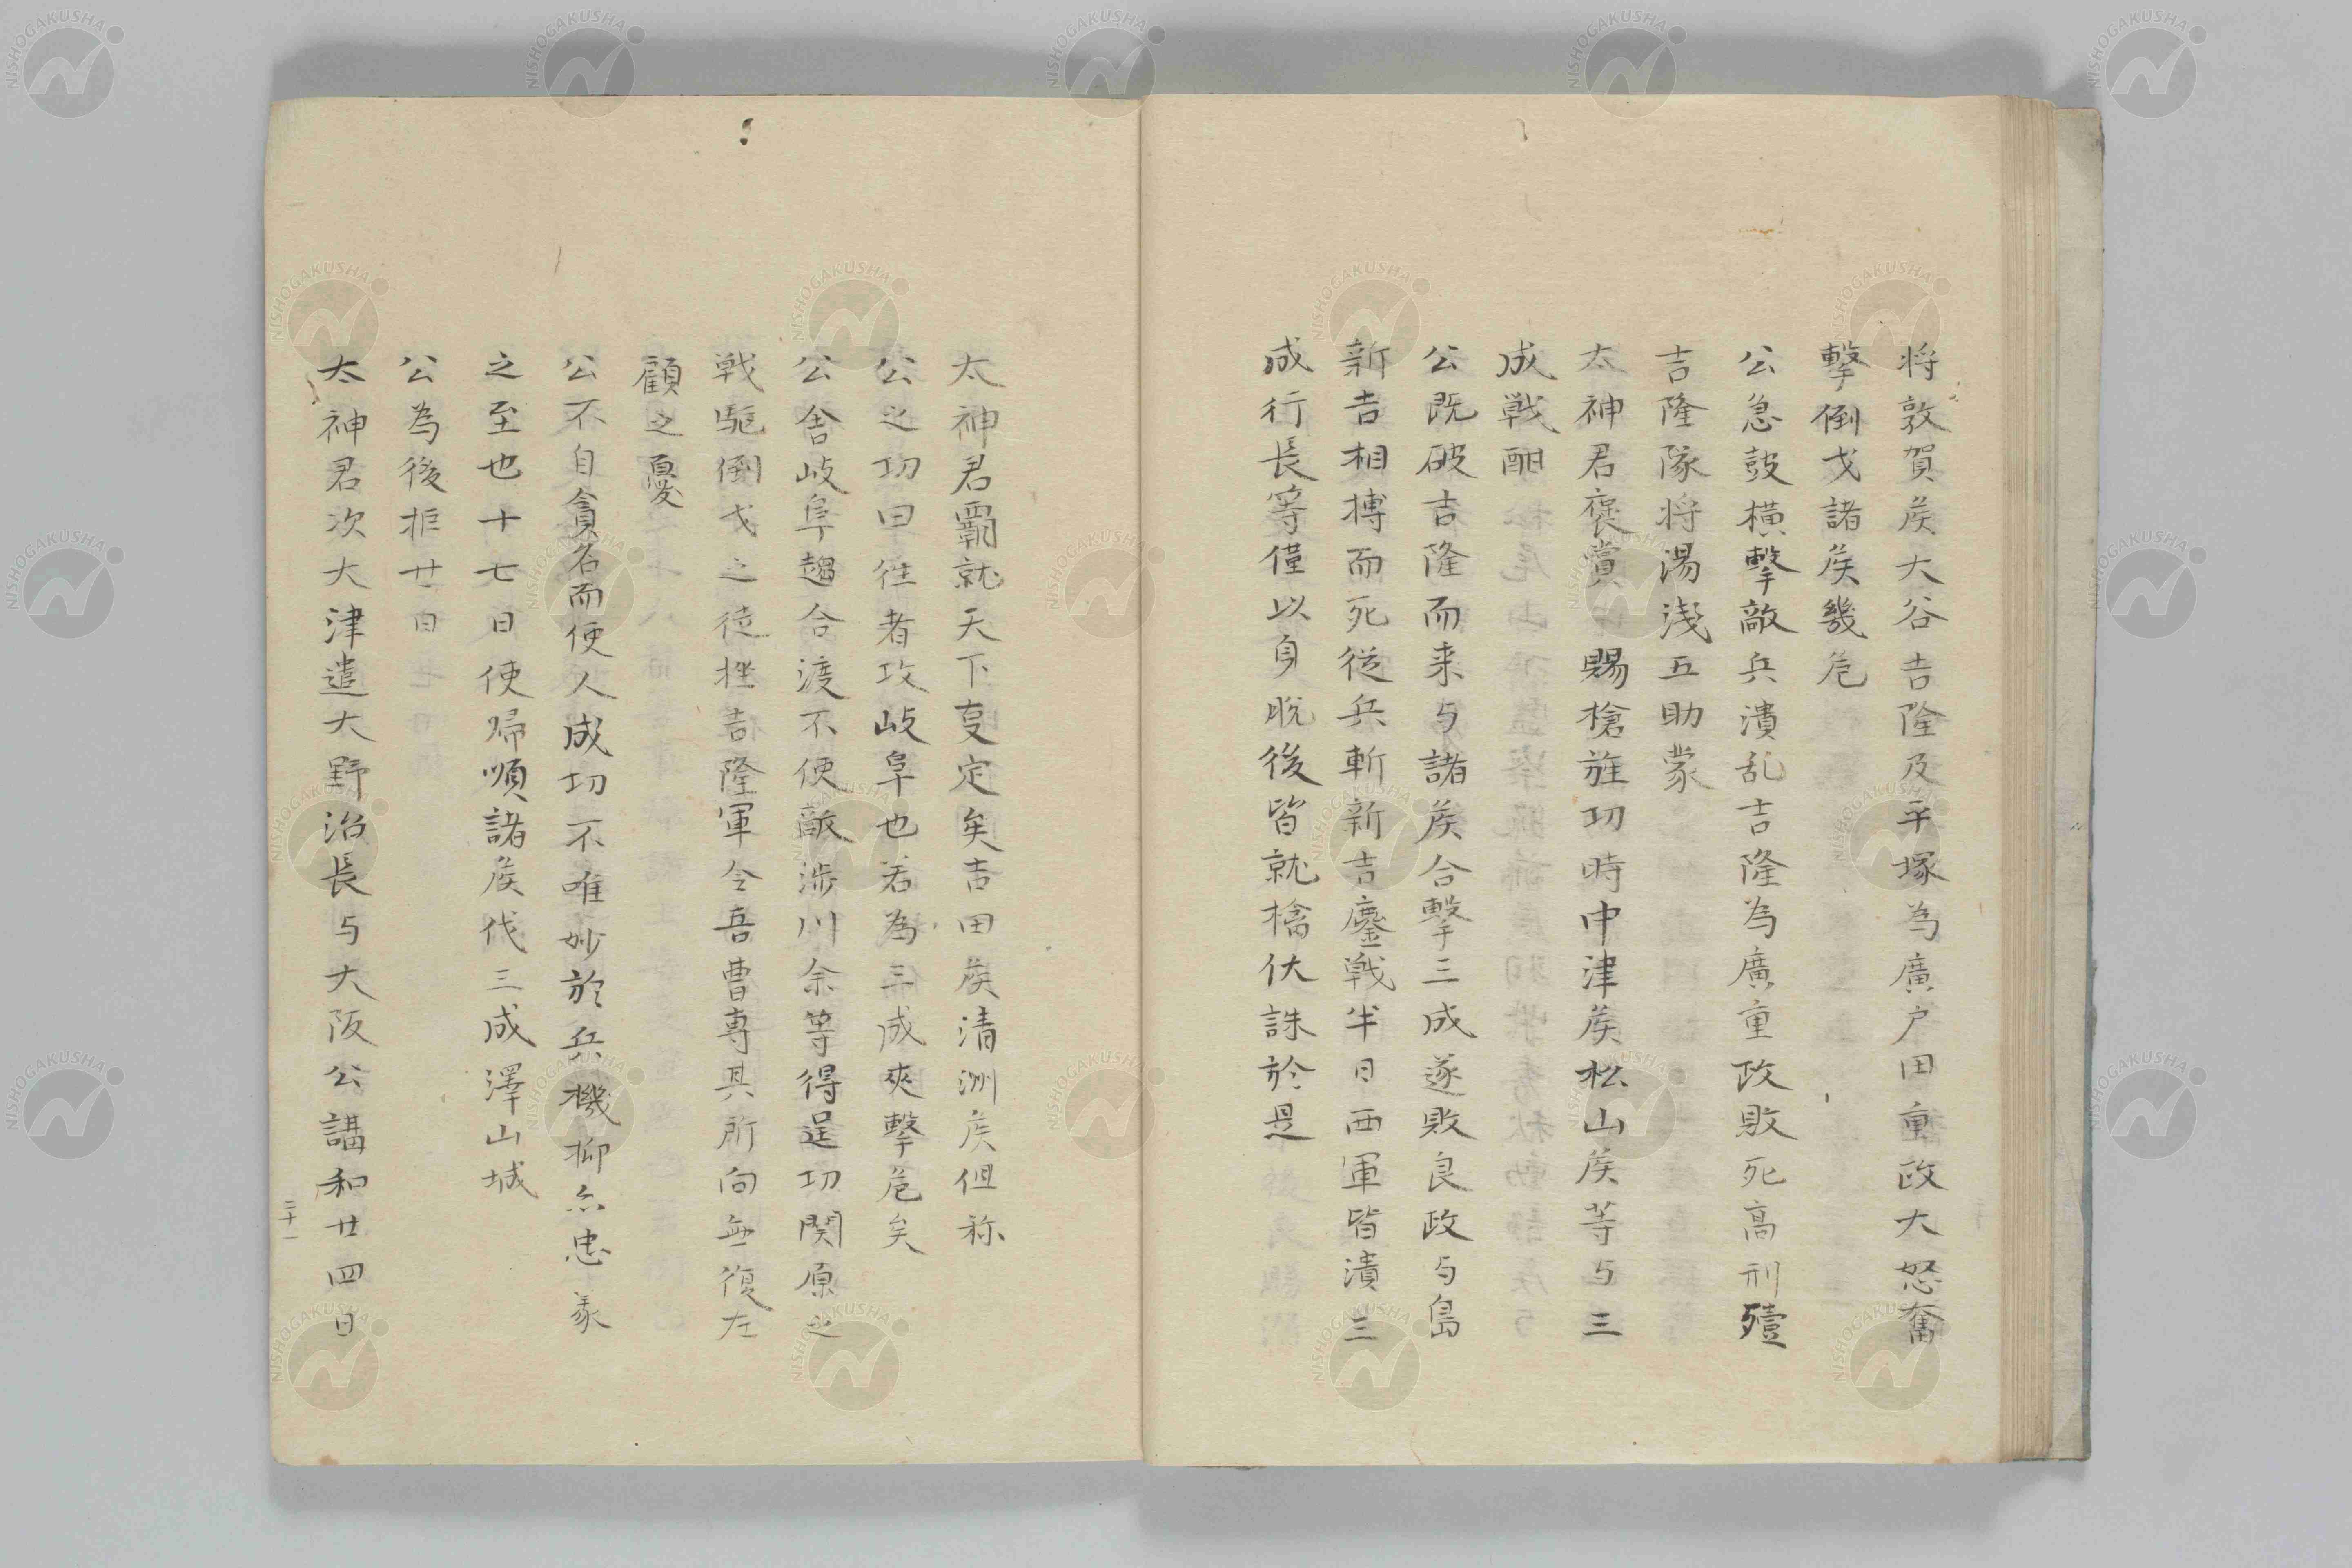 将敦賀矦大谷吉隆及平塚為廣戸田重政大怒奮
擊倒戈諸矦幾危
公急鼓橫擊敵兵潰乱吉隆為廣重政敗死高刑殪
吉隆隊将湯浅五助蒙
太神君褒賞賜槍旌功時中津矦松山矦等与三
成戦酣
公既破吉隆而来与諸矦合擊三成遂敗良政与島
新吉相搏而死従兵斬新吉鏖戦半日西軍皆潰三
成行長等僅以身脱後皆就檎伏誅於是
太神君覇就天下㝎定矣吉田矦清洲矦但称
公之功曰徃者攻岐阜也若為三成夾擊危矣
公舎岐阜趨合渡不使敵渉川余等得逞功関原之
戦駈倒戈之徒挫吉隆軍令吾曹専其所向無復左
顧之憂
公不自貪名而使人成功不唯妙於兵機抑亦忠義
之至也十七日使帰順諸矦伐三成澤山城
公為後拒廿日
太神君次大津遣大野治長与大阪公講和廿四日
二十一
NISHOGAKUSHA